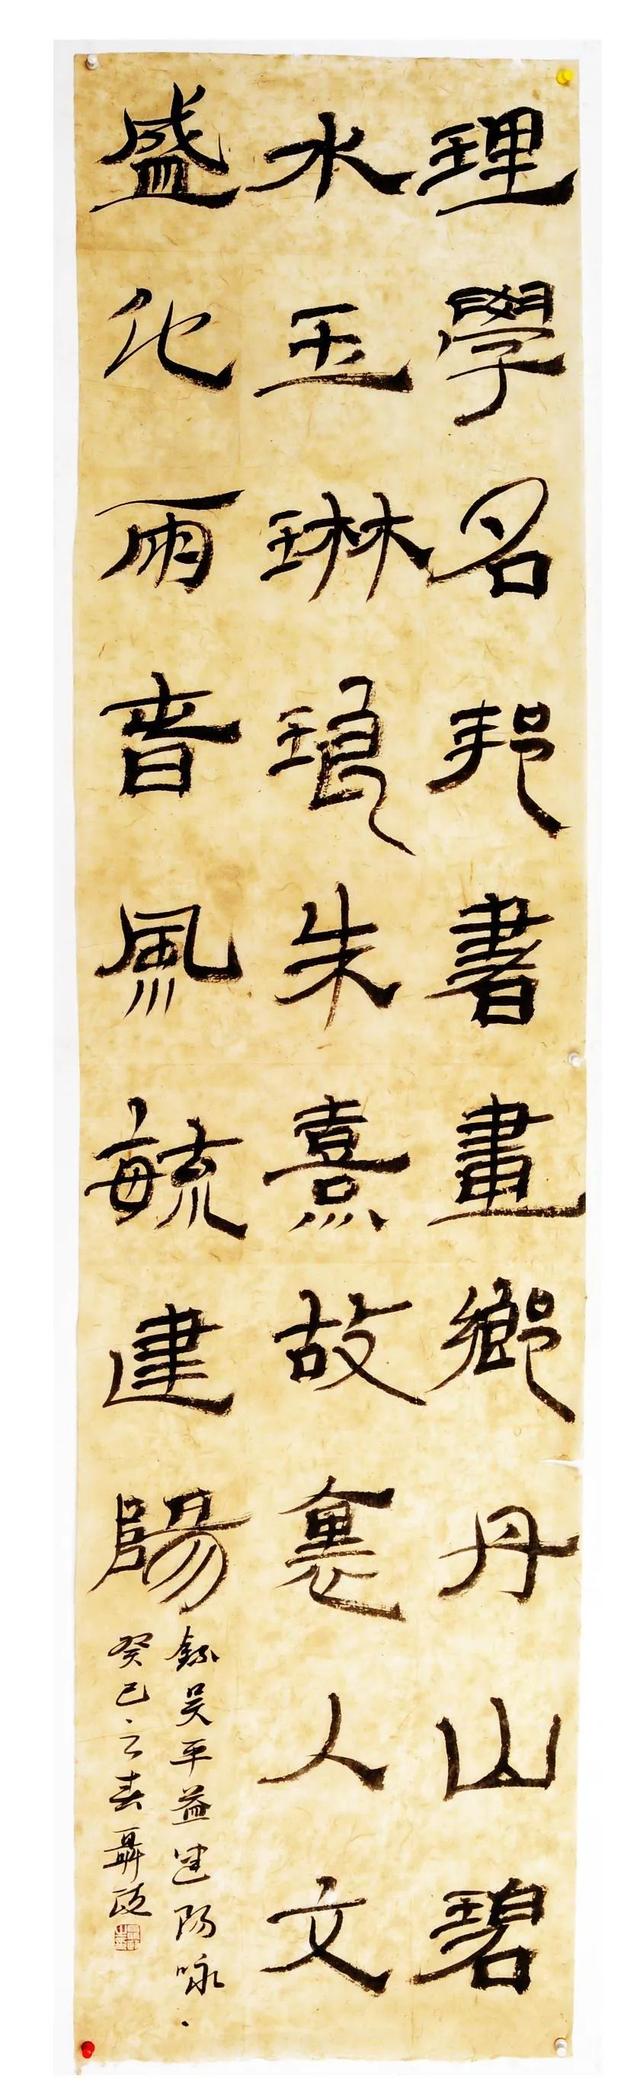 理學名邦書畫鄉丹山碧
水玉琳琅朱熹故裏人文
盛化雨春風毓建陽
錄吴平益建陽咏
癸巳之春聶